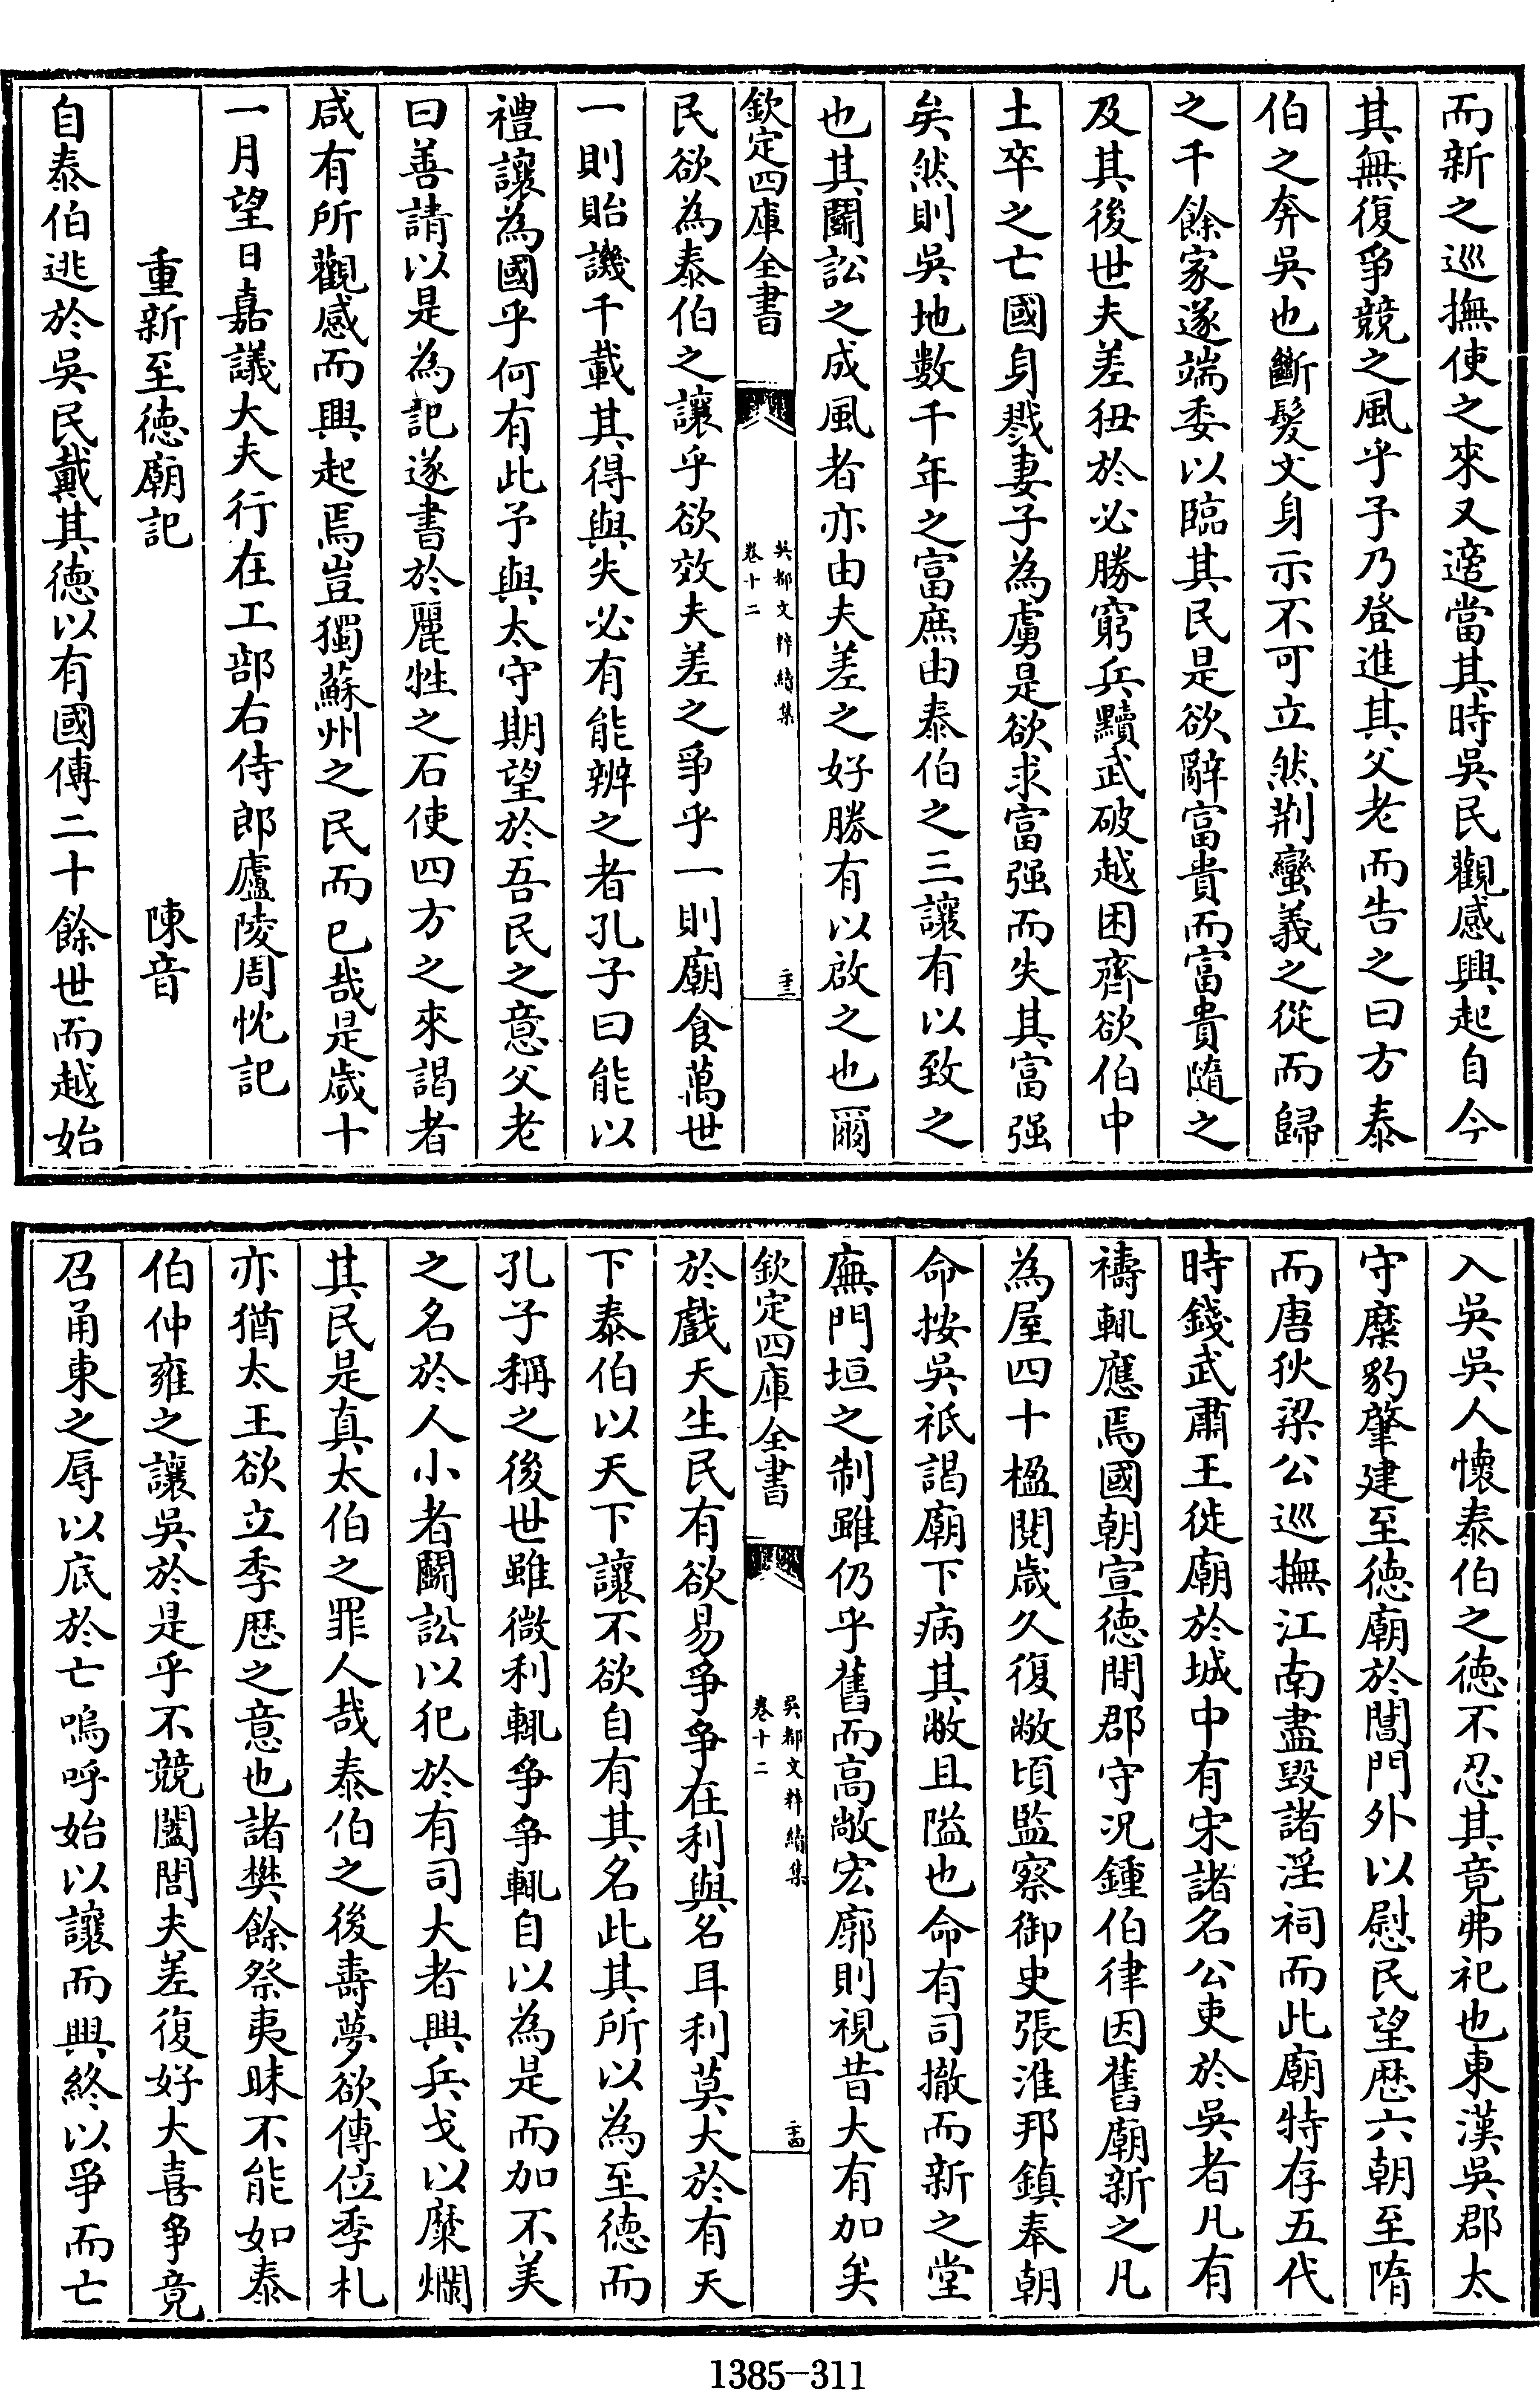 而新之巡撫使之來又適當其時吳民觀感興起自今
其無復爭競之風乎予乃登進其父老而告之曰方泰
伯之奔吳也斷髮文身示不可立然荆蠻義之從而歸
之千餘家遂端委以臨其民是欲辭富貴而富貴隨之
及其後世夫差狃於必勝窮兵黷武破越困齊欲伯中
土卒之亡國身戮妻子為虜是欲求富强而失其富强
矣然則吳地數千年之富庶由泰伯之三讓有以致之
也其鬭訟之成風者亦由夫差之好勝有以啟之也爾
欽定四庫全書
吳都文粹續集
卷十二
二十三
民欲為泰伯之讓乎欲效夫差之爭乎一則廟食萬世
一則貽譏千載其得與失必有能辨之者孔子曰能以
禮讓為國乎何有此予與太守期望於吾民之意父老
曰善請以是為記遂書於麗牲之石使四方之來謁者
咸有所觀感而興起焉豈獨蘇州之民而已哉是歲十
一月望日嘉議大夫行在工部右侍郎廬陵周忱記
重新至德廟記 陳音
自泰伯逃於吳民戴其德以有國傳二十餘世而越始
入吳吳人懷泰伯之德不忍其竟弗祀也東漢吳郡太
守糜豹肇建至德廟於閶門外以慰民望歷六朝至隋
而唐狄梁公巡撫江南盡毀諸淫祠而此廟特存五代
時錢武肅王徙廟於城中有宋諸名公吏於吳者凡有
禱輒應焉國朝宣德間郡守况鍾伯律因舊廟新之凡
為屋四十楹閱歲久復敝頃監察御史張淮邦鎮奉朝
命按吳祇謁廟下病其敝且隘也命有司撤而新之堂
廡門垣之制雖仍乎舊而高敞宏廓則視昔大有加矣
欽定四庫全書
吳都文粹續集
卷十二
二十四
於戲天生民有欲易爭爭在利與名耳利莫大於有天
下泰伯以天下讓不欲自有其名此其所以為至德而
孔子稱之後世雖微利輒爭爭輒自以為是而加不美
之名於人小者鬭訟以犯於有司大者興兵戈以糜爛
其民是真太伯之罪人哉泰伯之後壽夢欲傳位季札
亦猶太王欲立季歷之意也諸樊餘祭夷昧不能如泰
伯仲雍之讓吳於是乎不競闔閭夫差復好大喜爭竟
召甬東之辱以底於亡嗚呼始以讓而興終以爭而亡
1385-311